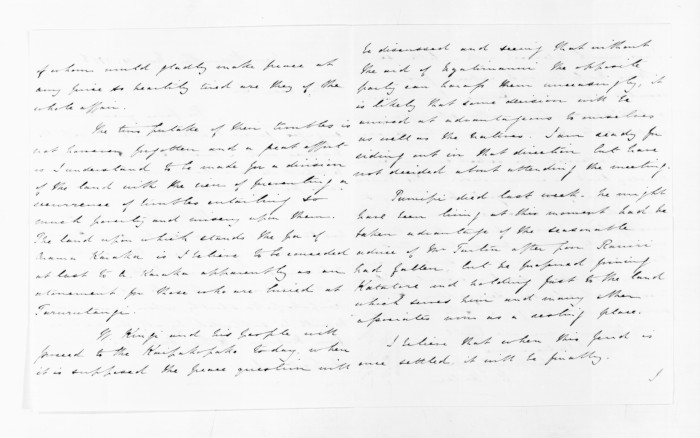 of whom would gladly make peace at
any price so heartily tired are they of the
whole affair.
The true of these troubles is
not however forgotten and a great effort
is I understand to be made for a division
of the land with the view of preventing a
recurrence of troubles entailing so
much poverty and misery upon them.
The land upon which stands the pa of
Karaka is I believe to be conceded
at last to Karaka apparently as an
atonement for those who are buried at
W. Kingi and his people will
proceed to the Kaipakopako today, when
it is supposed the peace question will
be discussed and seeing that without
the aid of Ngatimaniapoto the opposite
party can harass them unceasingly, it
is likely that some decision will be
arrived at advantageous to ourselves
as well as the natives. I am ready for
riding out in that direction but have
not decided about attending the meeting.
died last week. He might
have been living at this moment had he
taken advantage of the seasonable
advice of Mr Turton after poor Rawiri
had fallen, but he preferred joining
Katatore and holding fast to the land
which serves him and many other
now as a resting place.
I believe that when this feud is
once settled it will be finally.